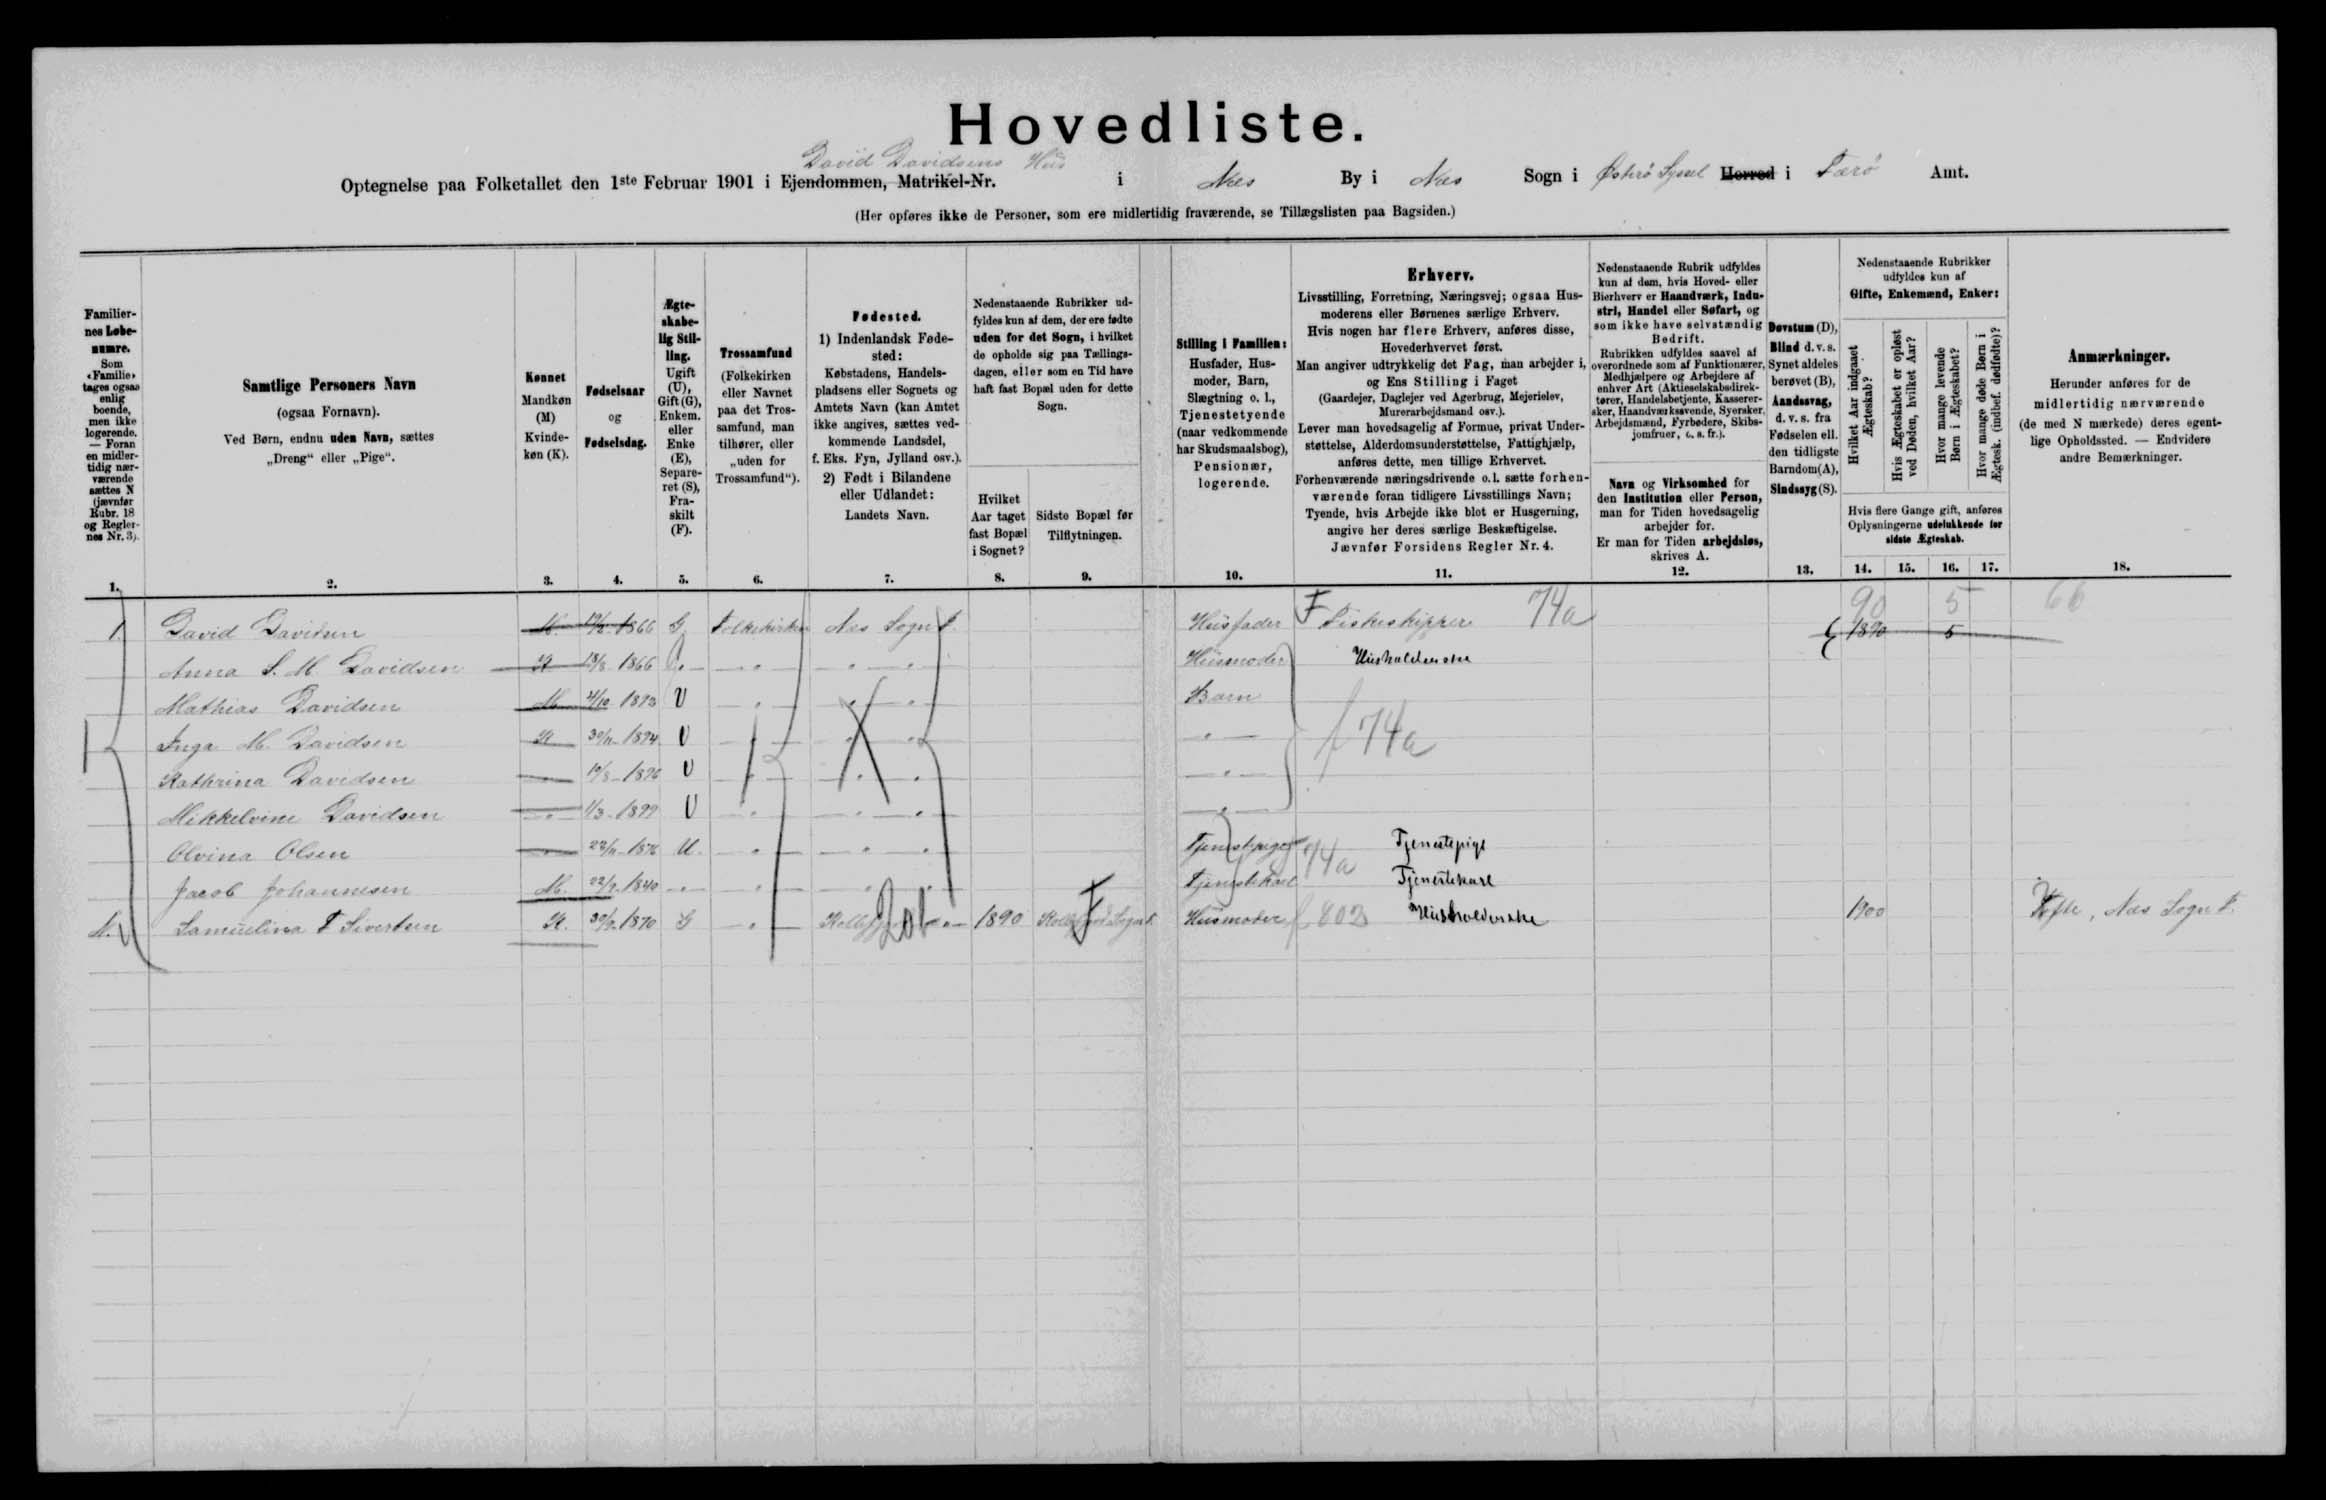 Hovedliste.
David Davidsens Hus
Optegnelse paa Folketallet den 1ste Februar 1901 i Ejendommen, Matrikel-Nr. i Næs By i Næs Sogn i Østerø Syssel Herred i Færø Amt.
(Her opføres ikke de Personer, som ere midlertidig fraværende, se Tillægslisten paa Bagsiden.)
Familiernes Løbenumre.
Som «Familie» tages ogsaa enlig boende, men ikke logerende. — Foran en midlertidig nærværende sættes N (jævnfør Rubr. 18 og Reglernes Nr. 3).
Samtlige Personers Navn
(ogsaa Fornavn).
Ved Børn, endnu uden Navn, sættes
„Dreng“ eller „Pige“.
Kønnet
Mandkøn (M)
Kvindekøn (K).
Fødselsaar
og
Fødselsdag.
Ægteskabelig Stilling.
Ugift (U), Gift (G), Enkem. eller Enke (E), Separeret (S), Fraskilt (F).
Trossamfund
(Folkekirken eller Navnet paa det Trossamfund, man tilhører, eller „uden for Trossamfund“).
Fødested.
1) Indenlandsk Fødested:
Købstadens, Handelspladsens eller Sognets og Amtets Navn (kan Amtet ikke angives, sættes vedkommende Landsdel, f. Eks. Fyn, Jylland osv.).
2) Født i Bilandene eller Udlandet:
Landets Navn.
Nedenstaaende Rubrikker udfyldes kun af dem, der ere fødte uden for det Sogn, i hvilket de opholde sig paa Tællingsdagen, eller som en Tid have haft fast Bopæl uden for dette Sogn.
Hvilket Aar taget fast Bopæl i Sognet?
Sidste Bopæl før Tilflytningen.
Stilling i Familien:
Husfader, Husmoder, Barn, Slægtning o. l., Tjenestetyende (naar vedkommende har Skudsmaalsbog), Pensionær, logerende.
Erhverv.
Livsstilling, Forretning, Næringsvej; ogsaa Husmoderens eller Børnenes særlige Erhverv.
Hvis nogen har flere Erhverv, anføres disse, Hovederhvervet først.
Man angiver udtrykkelig det Fag, man arbejder i, og Ens Stilling i Faget
(Gaardejer, Daglejer ved Agerbrug, Mejerielev, Murerarbejdsmand osv.).
Lever man hovedsagelig af Formue, privat Understøttelse, Alderdomsunderstøttelse, Fattighjælp, anføres dette, men tillige Erhvervet.
Forhenværende næringsdrivende o. l. sætte forhenværende foran tidligere Livsstillings Navn;
Tyende, hvis Arbejde ikke blot er Husgerning, angive her deres særlige Beskæftigelse.
Jævnfør Forsidens Regler Nr. 4.
Nedenstaaende Rubrik udfyldes kun af dem, hvis Hoved- eller Bierhverv er Haandværk, Industri, Handel eller Søfart, og som ikke have selvstændig Bedrift.
Rubrikken udfyldes saavel af overordnede som af Funktionærer, Medhjælpere og Arbejdere af enhver Art (Aktieselskabsdirektører, Handelsbetjente, Kasserersker, Haandværkssvende, Syersker, Arbejdsmænd, Fyrbødere, Skibsjomfruer, o. s. fr.).
Navn og Virksomhed for den Institution eller Person, man for Tiden hovedsagelig arbejder for.
Er man for Tiden arbejdsløs, skrives A.
Døvstum (D), Blind d. v. s. Synet aldeles berøvet (B), Aandssvag, d. v. s. fra Fødselen ell. den tidligste Barndom (A), Sindssyg (S).
Nedenstaaende Rubrikker udfyldes kun af
Gifte, Enkemænd, Enker:
Hvilket Aar indgaaet Ægteskab?
Hvis Ægteskabet er opløst ved Døden, hvilket Aar?
Hvor mange levende Børn i Ægteskabet?
Hvor mange døde Børn i Ægtesk. (indbef. dødfødte)?
Hvis flere Gange gift, anføres Oplysningerne udelukkende for sidste Ægteskab.
Anmærkninger.
Herunder anføres for de midlertidig nærværende (de med N mærkede) deres egentlige Opholdssted. — Endvidere andre Bemærkninger.
1. 2. 3. 4. 5. 6. 7. 8. 9. 10. 11. 12. 13. 14. 15. 16. 17. 18.
90 5 66
1. David Davidsen M. 1866 G Folkekirken Næs Sogn F. Husfader F Fiskeskipper 74a 1890 5
Anna S. M. Davidsen K 18/8 1866 G " " " Husmoder Husholderske
Mathias Davidsen M. 4/10 1893 U " " " Barn
Inga M. Davidsen K 30/11 1894 U " " " " f 74a
Kathrina Davidsen " 10/8 1896 U " " " "
Mikkeline Davidsen " 1/3 1899 U " " " "
Olvina Olsen " 22/11 1876 U. " " " Tjenestepige 74a Tjenestepige
Jacob Johannesen M. 22/2 1840 " " " " Tjenestekarl Tjenestekarl
N. Samuelina F Sivertsen K. 30/9 1870 G " 201 " 1890 F Husmoder f 803 Husholderske 1900 Tofte, Næs Sogn F.